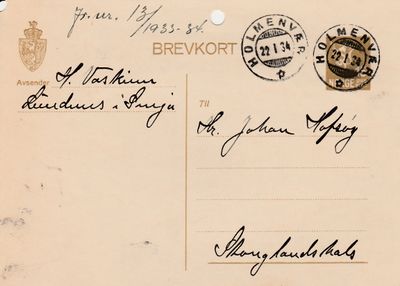 Jr. nr. 13/
1933-34.
BREVKORT
HOLMENVÆR
22 I 34
HOLMENVÆR
22 I 34
NORGE
Avsender
H.
i Senja
Til
Hr. Johan Hofsøy
Skonglandshals